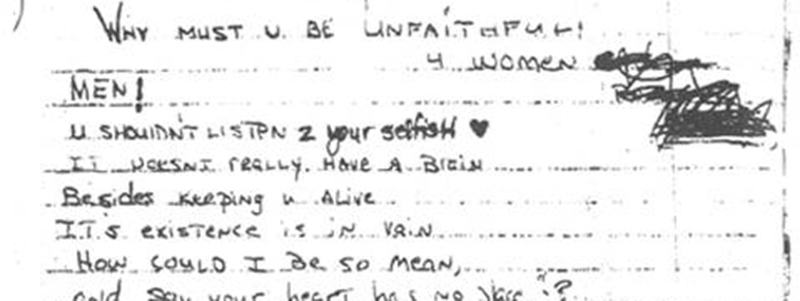 WHY MUST U BE UNFAITHFUL!
4 WOMEN
MEN!
U SHOULDN'T LISTEN 2 your selfish ♥
IT DOESNT really HAVE A BRAIN
Besides keeping u ALIVE
IT.S existence is in VAIN
HOW COULD I Be so mean,
and say your heart has no